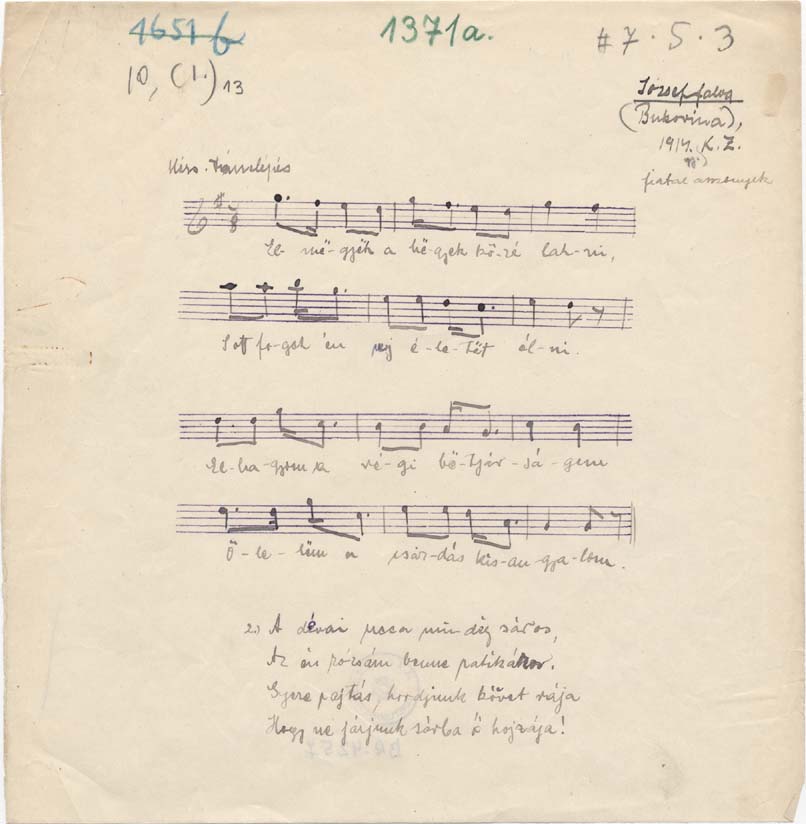 4651 b
1371a.
# 7 · 5 · 3
10, (1.) 13
Józseffalva
(Bukovina),
1914. K. Z.
fiatal asszonyok
El-më-gyëk a hë-gyek kö-zé lak-ni,
S ott fo-gok én uj é-le-tët él-ni.
El-ha-gyom a ré-gi bë-tjár-sá-gom
Ö-le-lëm a csár-dás kis-an-gya-lom.
2.) A dévai ucca min-dég sáros,
Az én rózsám benne patikáros.
Gyere pajtás, hordjunk követ rája
Hogy ne járjunk sárba ő hozzája!